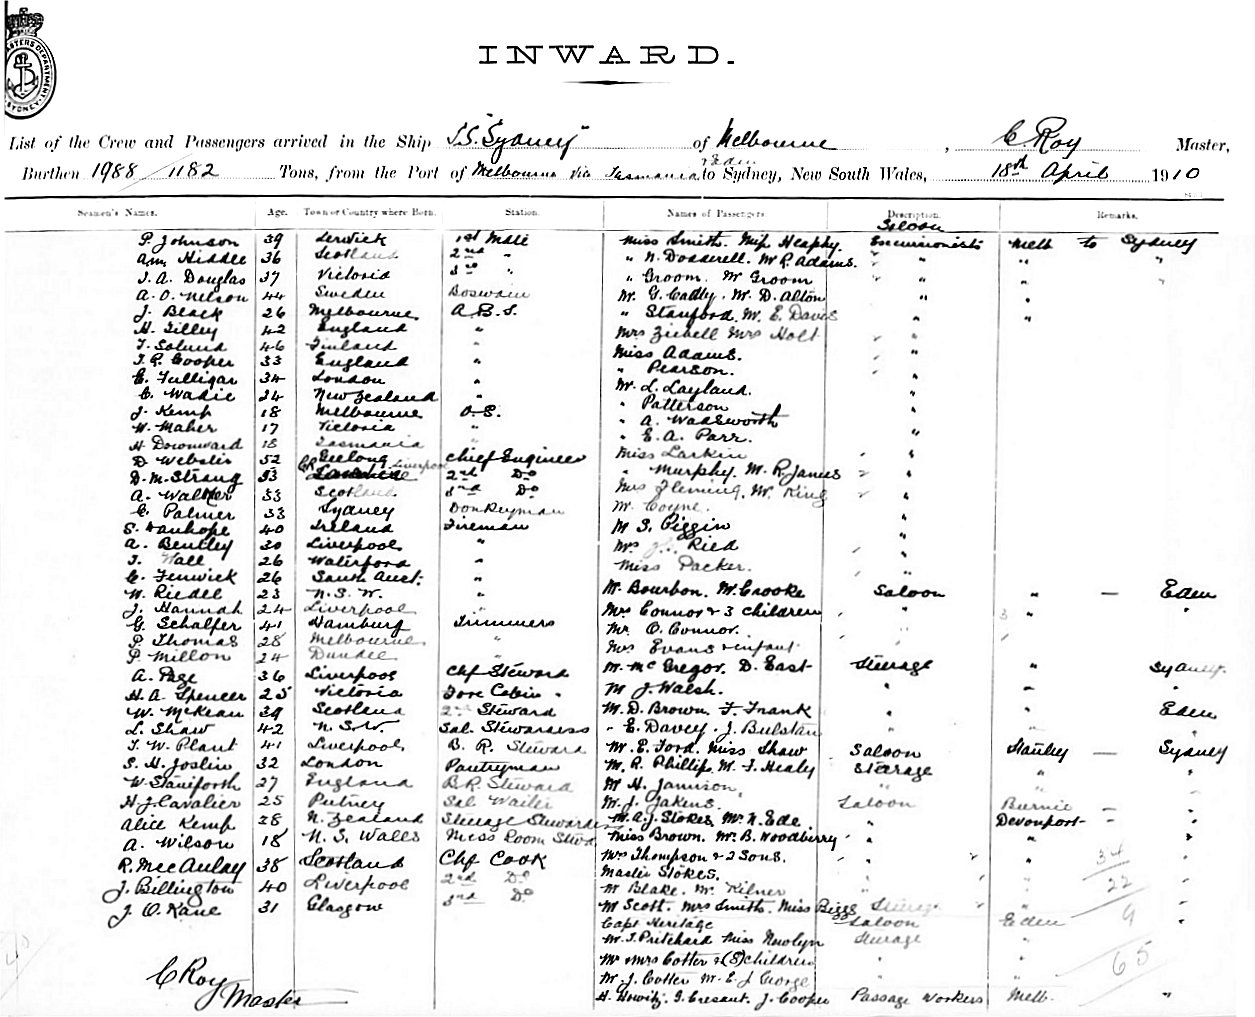 MASTERS DEPARTMENT SYDNEY
INWARD.
List of the Crew and Passengers arrived in the Ship S.S. "Sydney" of Melbourne, C. Roy Master,
Burthen 1988/1182 Tons, from the Port of Melbourne via Tasmania & Eden to Sydney, New South Wales, 18th April 1910
Seamen's Names. Age. Town or Country where Born. Station. Names of Passengers. Description. Remarks.
Saloon
P. Johnson 39 Lerwick 1st Mate Miss Smith. Miss Heaphy. Excursionists Melb to Sydney
Am. Hiddle 36 Scotland 2nd " " N. Dodderell. Mr R. Adams. " " "
J. A. Douglas 37 Victoria 3rd " " Groom. Mr Groom " " "
A. O. Nelson 44 Sweden Boswain Mr. G. Cadby. Mr. D. Alton " "
J. Black 26 Melbourne A.B.S. " Stanford. Mr. E. Davis " "
H. Tilley 42 England " Mrs Ziebell Mrs Holt "
T. Solund 46 Finland " Miss Adams. "
J. R. Cooper 33 England " " Pearson. "
E. Fulligar 34 London " Mr. L. Layland. "
C. Wadie 24 New Zealand " " Patterson "
J. Kemp 18 Melbourne O.S. " A. Wadsworth "
W. Maher 17 Victoria " " E. A. Parr. "
H. Downward 18 Tasmania " Miss Larkin "
D. Webster 52 Geelong Chief Engineer " Murphy. Mr. R. James "
D. M. Strang 33 CR Liverpool 2nd Do Mrs Fleming. Mr. King "
A. Walker 33 Scotland 3rd Do Mr. Coyne. "
C. Palmer 33 Sydney Donkeyman Mr S. Piggin "
S. Stanhope 40 Ireland Fireman Mrs Ried "
A. Bentley 30 Liverpool " Miss Packer. "
T. Wall 26 Waterford "
C. Fenwick 26 South Aust. " Mr. Bourbon. Mr. Crooke Saloon " — Eden
W. Riedel 23 N.S.W. " Mrs Connor & 3 children " 3 " "
J. Hannah 24 Liverpool " Mr. O. Connor. "
G. Schalfer 41 Hamburg Trimmers Mrs Evans & infant " "
P. Thomas 28 Melbourne " Mr. McGregor. D. East Steerage " Sydney.
P. Millon 24 Dundee "
A. Page 36 Liverpool Chf Steward Mr J. Walsh. " " "
H. A. Spencer 25 Victoria Fore Cabin " Mr. D. Brown. F. Frank " " Eden
W. McKean 39 Scotland 2nd Steward " E. Davey. J. Bulstan " " "
L. Shaw 42 N.S.W. Sal. Stewardess Mr. E. Ford. Miss Shaw Saloon Stanley — Sydney
T. W. Plant 41 Liverpool B. R. Steward Mr. R. Phillip. Mr. T. Healy Steerage " "
S. H. Joslin 32 London Pantryman Mr H. Jamison. " " "
W. Staniforth 27 England B.R. Steward Mr. J. Jakens. Saloon Burnie — "
H. J. Cavalier 25 Putney Sal. Waiter Mr. A. J. Stokes. Mr. N. Ede. " Devonport — "
Alice Kemp 28 N. Zealand Steerage Stewardess Miss Brown. Mr. B. Woodberry " " "
A. Wilson 18 N. S. Wales Mess Room Stwd. Mrs Thompson & 2 Sons. " " 34 "
R. MacAulay 38 Scotland Chf Cook Master Stokes. " " "
J. Billington 40 Liverpool 2nd Do Mr Blake. Mr. Kilner " " 22 "
J. O. Kane 31 Glasgow 3rd Do Mr Scott. Mrs Smith. Miss Biggs Steerage " 9 "
Capt Heritage Saloon Eden "
Mr. T. Pritchard Miss Newlyn Steerage "
Mr Mrs Cotter & (5) children " " 65
Mr. J. Cotter Mr. E. J. George " "
H. Howitz. G. Cresant. J. Cooper Passage Workers Melb. "
C Roy
Master